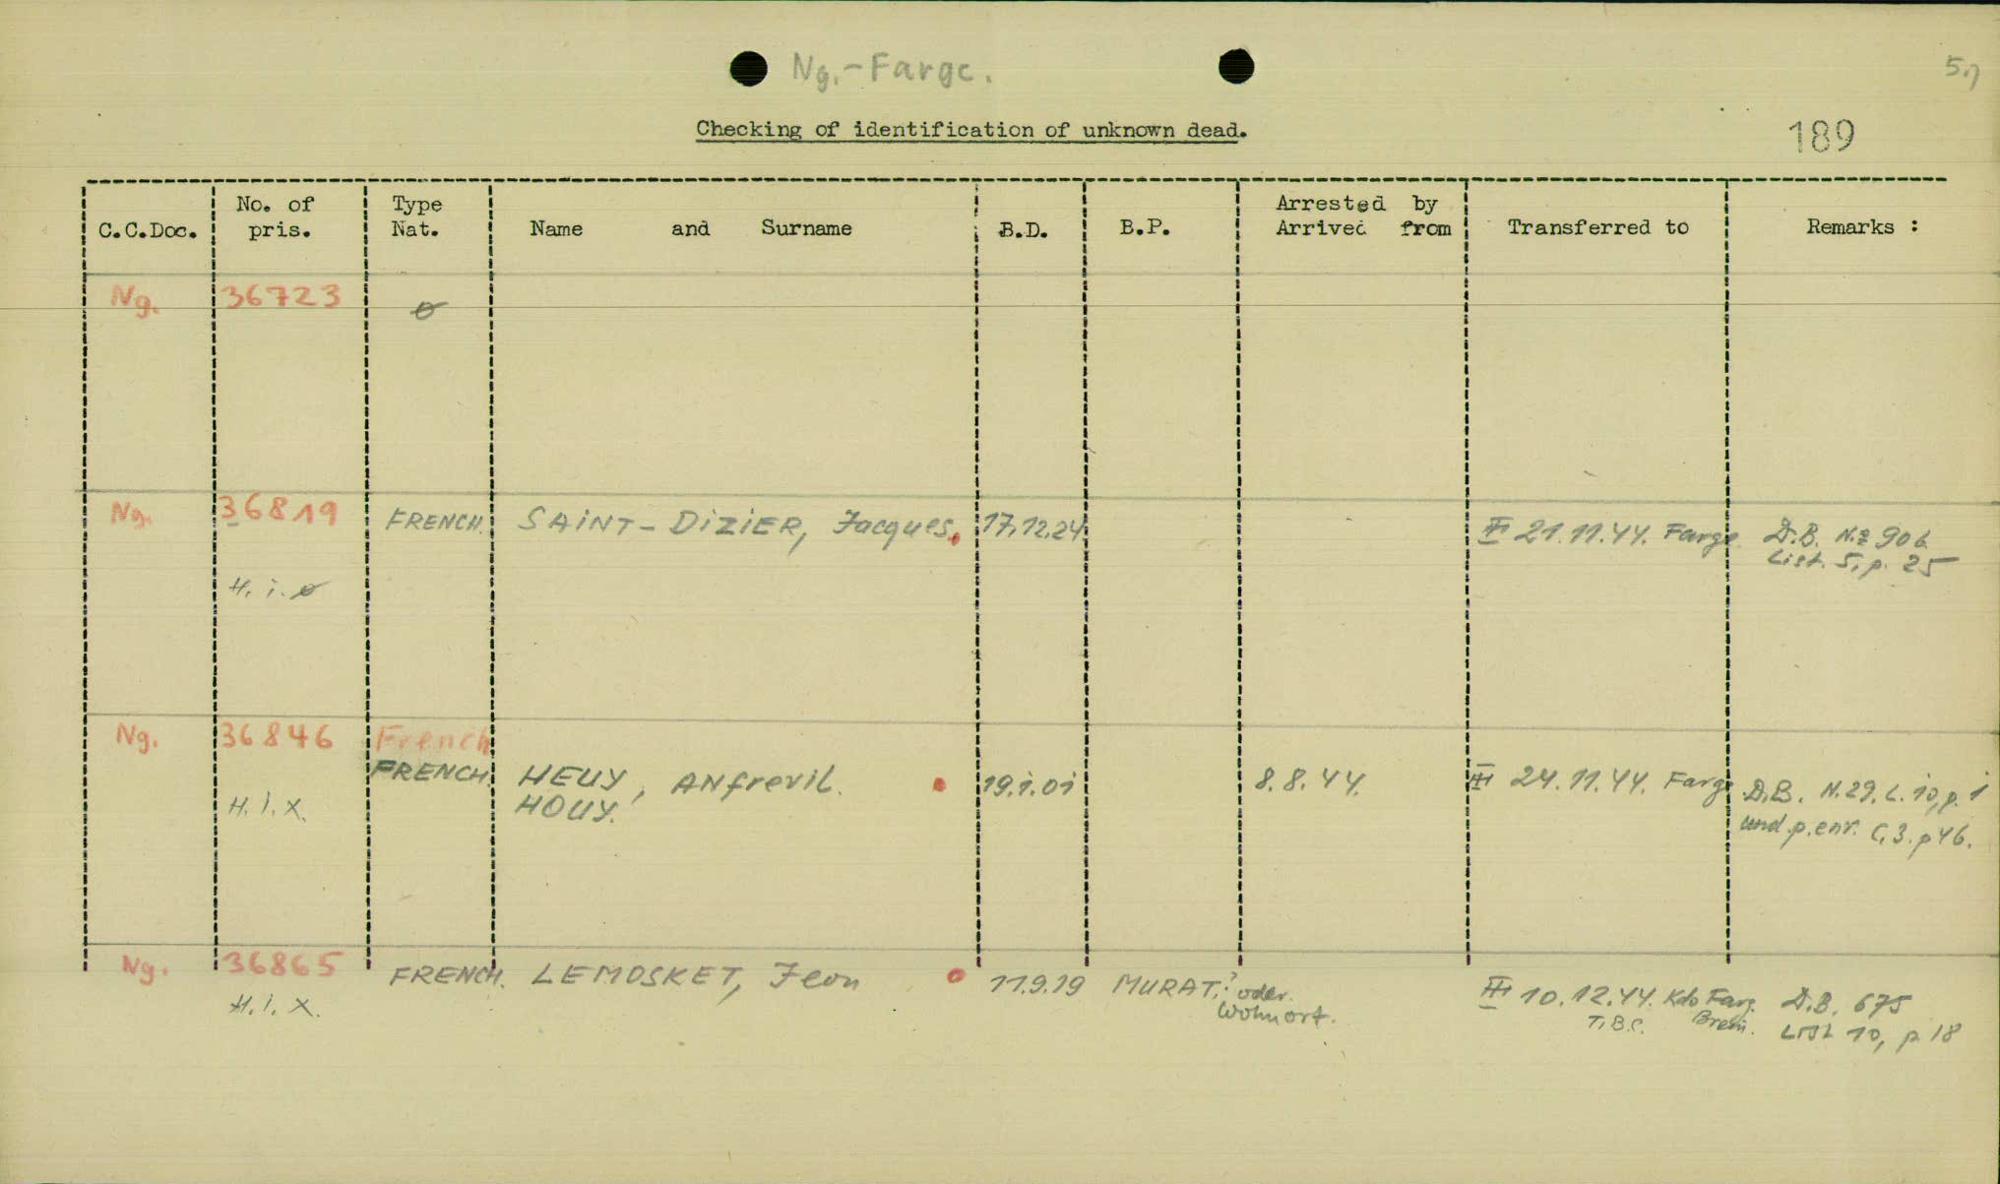 Ng.-Farge.
5.
Checking of identification of unknown dead.
189
C.C.Doc. No. of pris. Type Nat. Name and Surname B.D. B.P. Arrested by Arrived from Transferred to Remarks :
Ng. 36723 ø
Ng. 36819 FRENCH. SAINT-DIZIER, Jacques. 17.12.24. 21.11.44. Farge D.B. N.º 906
List. 5, p. 25
H. i. ø
Ng. 36846 French
FRENCH. HEUY, ANfrevil. 19.1.01 8.8.44. III 24.11.44. Farge D.B. N.29, L. 10, p. 1
HOUY.
H. i. X. und p. enr. C,3. p 46.
Ng. 36865 FRENCH. LEMOSKET, Jean 11.9.19 MURAT,? oder Wohnort. III 10.12.44. Kdo Farg. Brem. D.B. 675
H. i. X. T.B.C. List 10, p 18